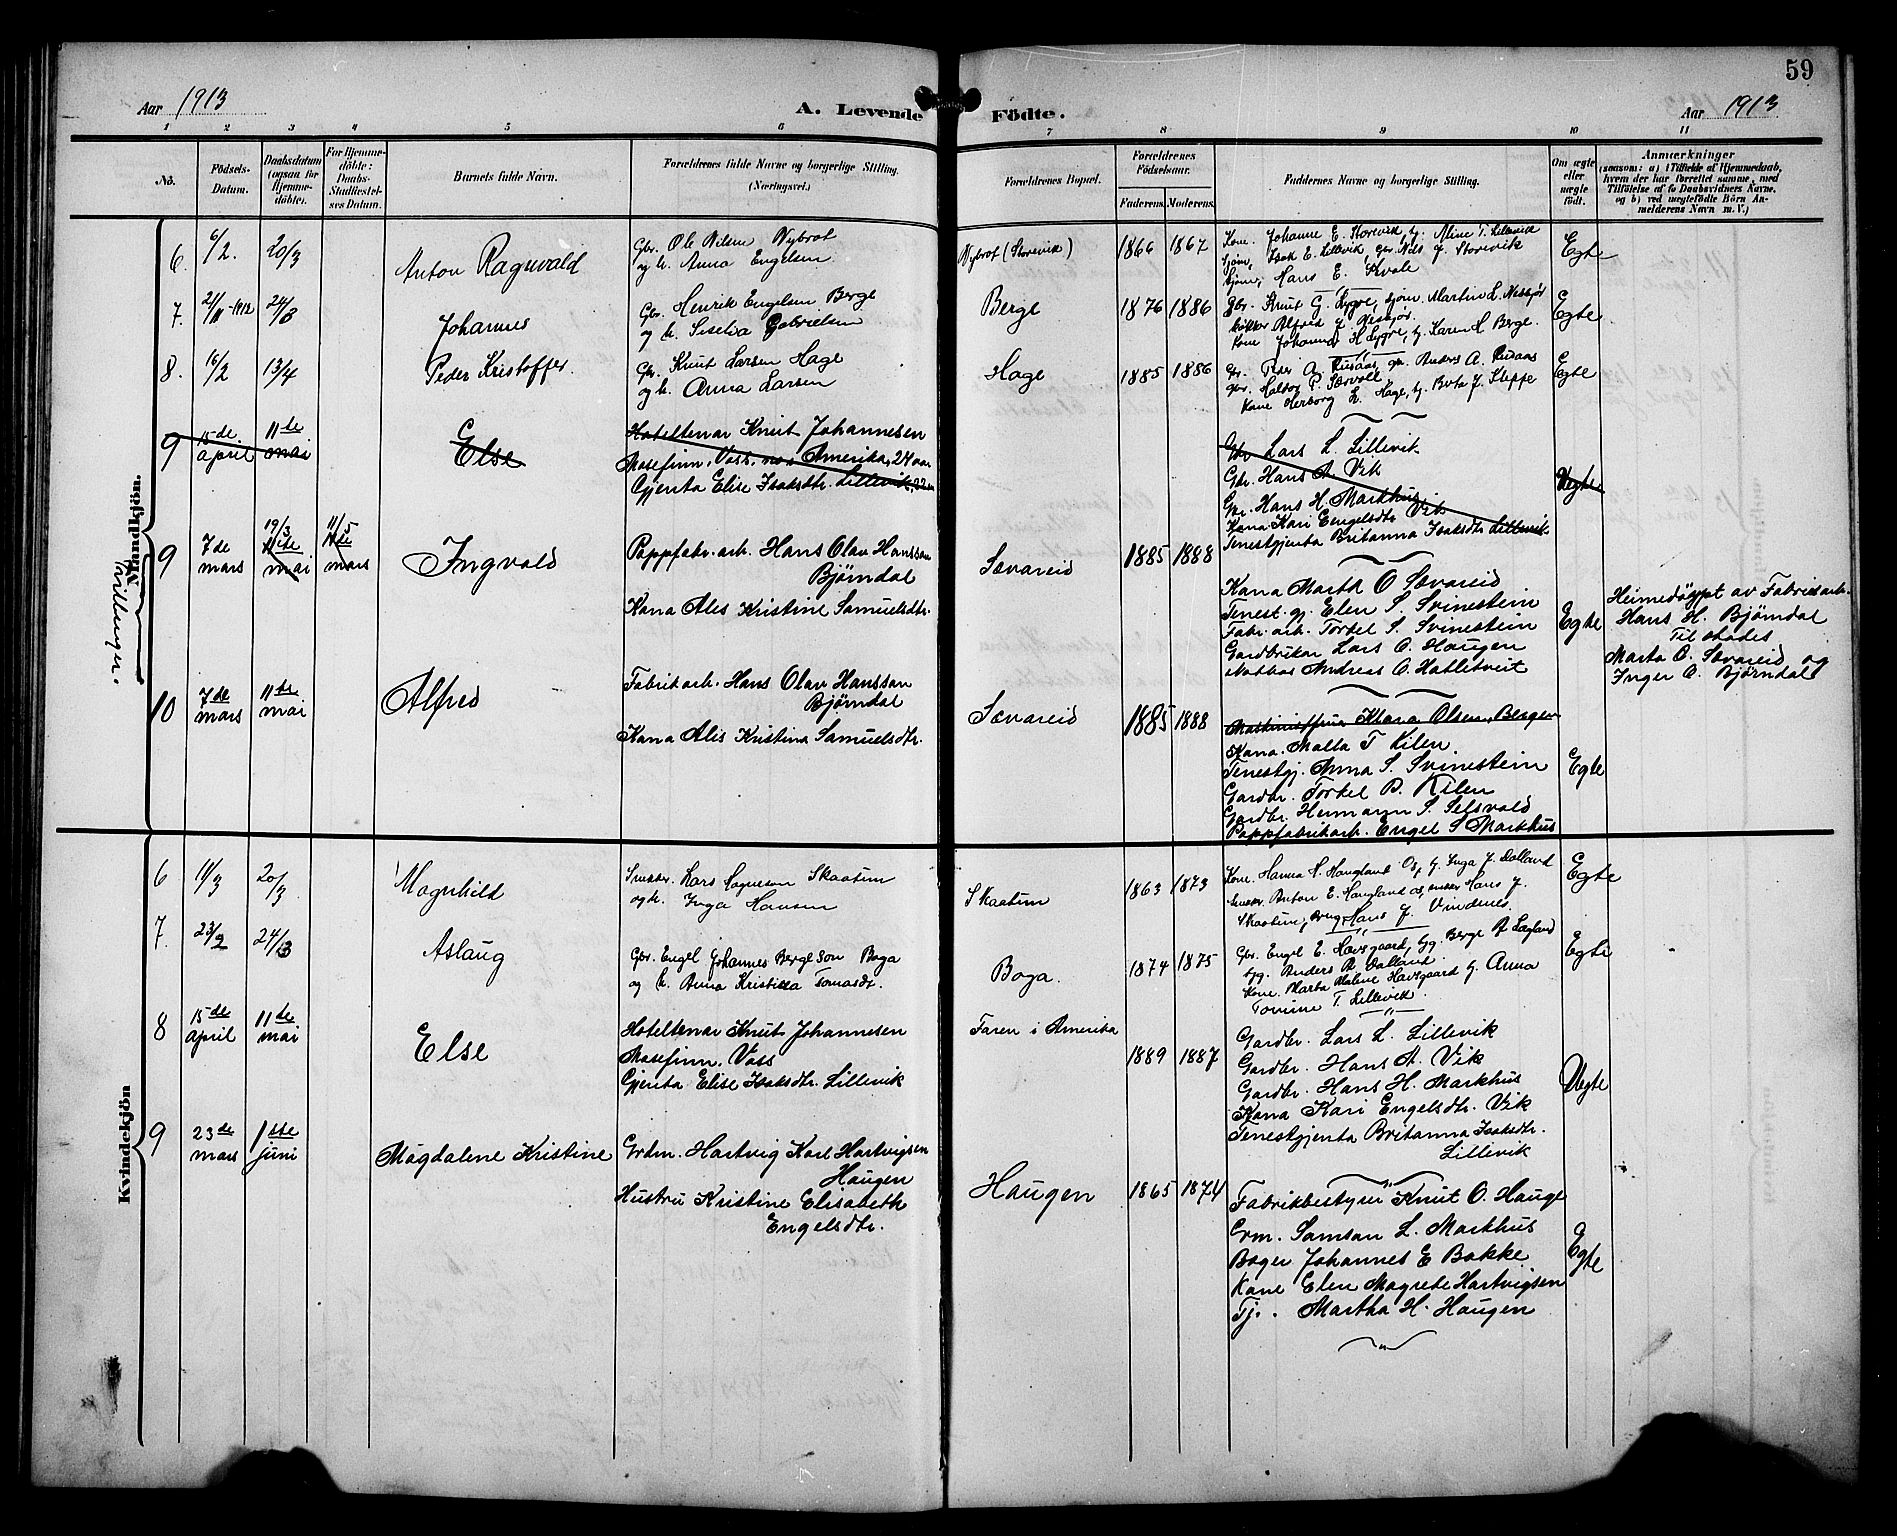 59
Aar 1913
A. Levende Födte.
Aar 1913
1 2 3 4 5 6 7 8 9 10 11
No.
Födsels-Datum.
Daabsdatum (ogsaa for Hjemme-döbte).
For Hjemme-döbte: Daabs-Stadfæstel-ses Datum.
Barnets fulde Navn.
Forældrenes fulde Navne og borgerlige Stilling. (Næringsvei.)
Forældrenes Bopæl.
Forældrenes Födselsaar.
Faderens. Moderens.
Faddernes Navne og borgerlige Stilling.
Om ægte eller uægte födt.
Anmærkninger
(saasom: a) i Tilfælde af Hjemmedaab, hvem der har forrettet samme, med Tilföielse af to Daabsvidners Navne, og b) ved uægtefödte Börn An-melderens Navn m. V.)
Mandkjön.
6. 6/2. 20/3 Anton Ragnvald
Gbr. Ole Nilsen Nybrot
og h. Anna Engelsen
Nybrot (Storevik) 1866 1867
Kone Johanne E. Storevik, tj. Aline T. Lillevik
Sjöm. Isak E. Lillevik, gbr. Nils J. Storevik
Sjöm. Hans E. Kvale
Egte
7. 21/11-1912 24/3 Johannes
Gbr. Henrik Engelsen Berge
og h. Siselia Gabrielsen
Berge 1876 1886
Gbr. Knut G. Lygre, sjöm. Martin L. Nesbjör
bökker Alfred J. Nesbjör.
Kone Johanna H Lygre, tj. Karen H Berge.
Egte
8. 16/2 13/4 Peder Kristoffer.
Gbr. Knut Larsen Hage
og h. Anna Larsen
Hage 1885 1886
Gbr. Peder A. Rusaas, gbr. Anders A. Rusaas
gbr. Haldor P. Sævold
Kone Herborg L. Hage, tj. Berta J. Kleppe
Egte
9 15de april 11te mai Else
Hoteltenar Knut Johannesen
Mosefinn, Voss, no i Amerika, 24 aar
Gjenta Elise Isaksdtr. Lillevik, 22 aar
Gbr Lars L. Lillevik
Gbr. Hans A. Vik
Gbr. Hans H. Markhus
Kona Kari Engelsdtr Vik
Tenestgjenta Britanna Isaksdtr Lillevik
Uegte
Tvillinger.
9 7de mars 19/3 11te mai 11/5 mars Ingvald
Pappfabr.arb. Hans Olav Hanssen
Bjørndal
Kona Alis Kristine Samuelsdtr.
Sævareid 1885 1888
Kona Marta O Sævareid
Tenest.gj. Elen S. Svinestein
Fabr.arb. Torkel S. Svinestein
Gardbrukar Lars O. Haugen
Andreas O. Hatletveit
Egte
Heimedøypt av Fabrikarb.
Hans H. Bjørndal
Til stades
Marta O. Sævareid og
Inger O. Bjørndal
10 7de mars 11te mai Alfred
Fabrikarb. Hans Olav Hanssan
Bjørndal
Kona Alis Kristina Samuelsdtr.
Sævareid 1885 1888
Maskinistfrua Klara Olsen, Bergen
Kona Malla T Kilen.
Tenestgj. Anna S. Svinestein
Gardbr. Torkel B. Kilen
Gardbr. Hermann S. Selsvold
Pappfabrikarb. Engel S Markhus
Egte
Kvindekjön
6 11/3 20/3 Magnhild
Snekker. Lars Magneson Skaatun
og h. Inga Hansen
Skaatun 1863 1873
Kone. Hanna N. Haugland Os, tj. Inga J. Dalland
Snekker Anton E. Haugland os, snekker Hans J.
Skaatun, Hans J. Vindenes.
Egte
7. 23/2 24/3 Aslaug
Gbr. Engel Johannes Bergeson Boga
og h. Anna Kristina Tomasdt.
Boga. 1874 1875
Gbr. Engel E. Havsgaard, Berge A Lægland
Anders A Dalland
Kone. Marta Malene Havsgaard tj. Anna
Tomine T. Lillevik.
Egte
8 15de april 11te mai Else
Hoteltenar Knut Johannesen
Mosefinn, Voss
Gjenta Elise Isaksdtr. Lillevik
Faren i Amerika
1889 1887
Gardbr. Lars L. Lillevik
Gardbr. Hans A. Vik
Gardbr. Hans H. Markhus
Kona Kari Engelsdtr. Vik
Tenestgjenta Britanna Isaksdtr.
Lillevik
Uegte
9 23de mars 1ste juni Magdalene Kristine
Grdm. Hartvig Karl Hartvigsen
Haugen
Hustru Kristine Elisabeth
Engelsdtr.
Haugen 1865 1874
Fabrikbestyrer Knut O. Hauge
Grm. Samson L. Markhus
Bager Johannes E Bakke
Kone Elen Magrete Hartvigsen
Tj. Martha H. Haugen
Egte